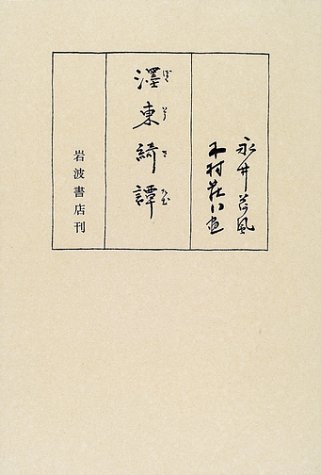 永井荷風
木村荘八画
濹東綺譚
ぼくとうきたん
岩波書店刊